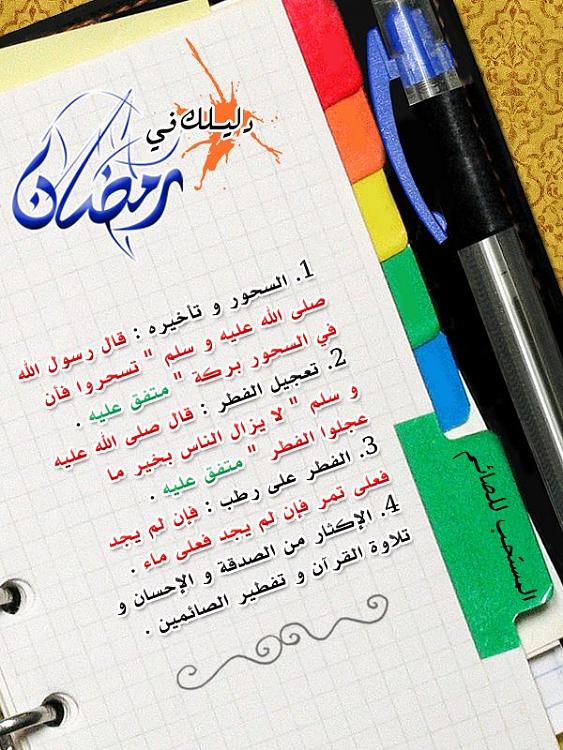 دليلك في
رمضان
1. السحور و تأخيره : قال رسول الله
صلى الله عليه و سلم " تسحروا فأن
في السحور بركة " متفق عليه .
2. تعجيل الفطر : قال صلى الله عليه
و سلم " لا يزال الناس بخير ما
عجلوا الفطر " متفق عليه .
3. الفطر على رطب : فإن لم يجد
فعلى تمر فإن لم يجد فعلى ماء .
4. الإكثار من الصدقة و الإحسان و
تلاوة القرآن و تفطير الصائمين .
المستحب للصائم